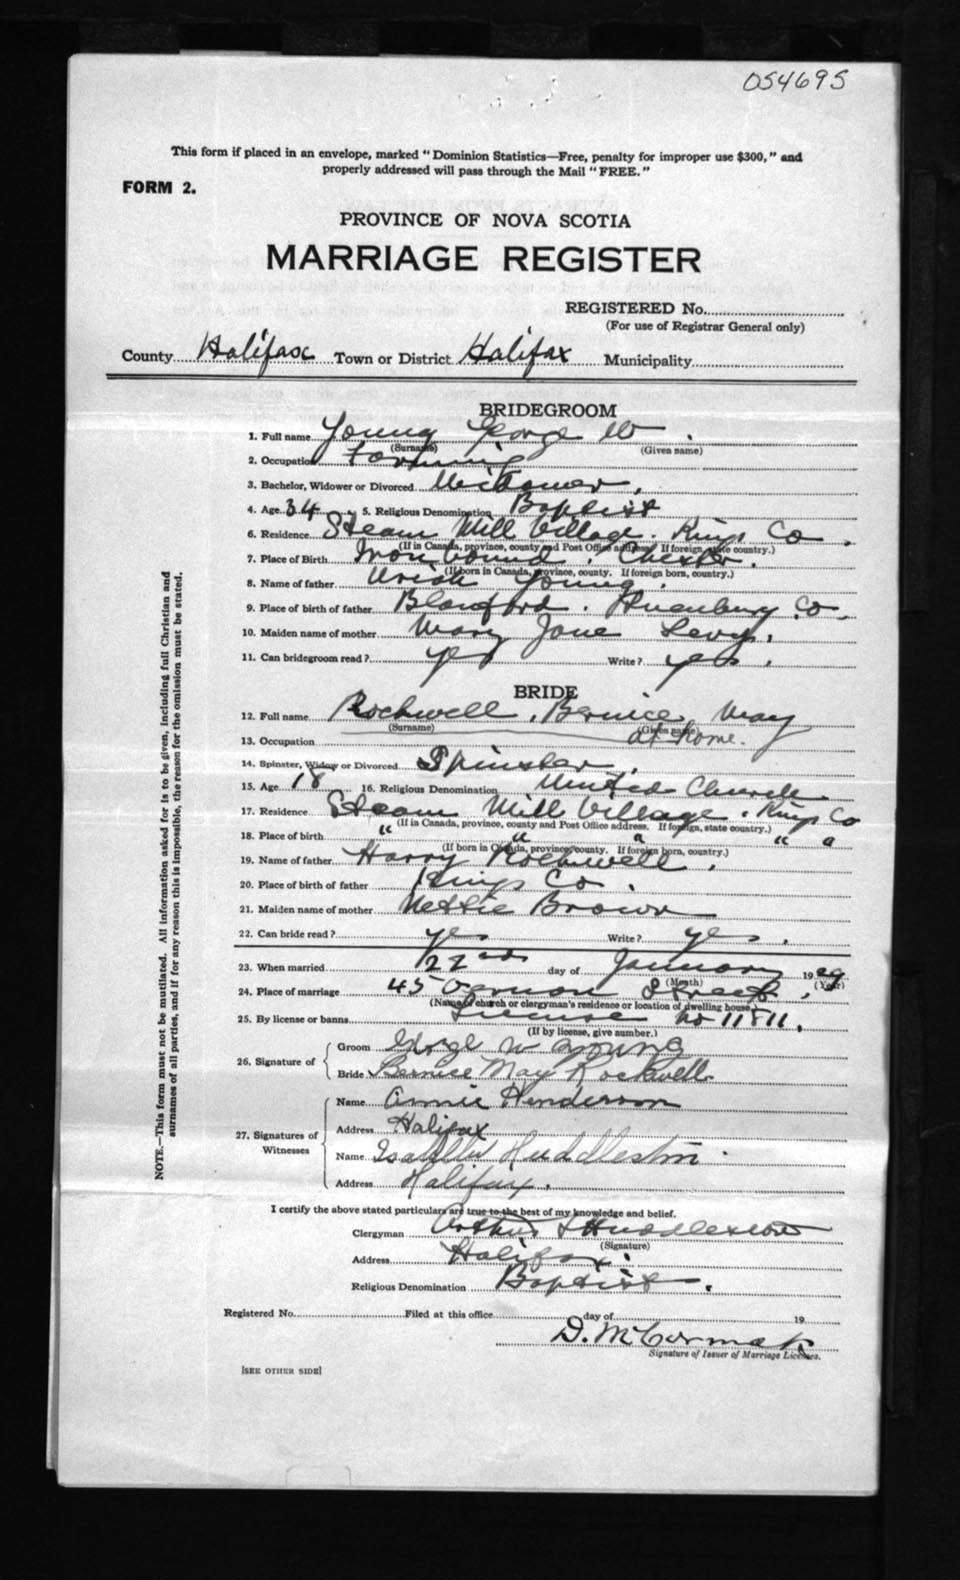 054695
This form if placed in an envelope, marked "Dominion Statistics—Free, penalty for improper use $300," and
properly addressed will pass through the Mail "FREE."
FORM 2.
PROVINCE OF NOVA SCOTIA
MARRIAGE REGISTER
REGISTERED No.
(For use of Registrar General only)
County Halifax Town or District Halifax Municipality
BRIDEGROOM
1. Full name Young George W.
(Surname) (Given name)
2. Occupation Farming
3. Bachelor, Widower or Divorced Widower.
4. Age 34 5. Religious Denomination Baptist
6. Residence Steam Mill Village. Kings Co.
(If in Canada, province, county and Post Office address. If foreign, state country.)
7. Place of Birth Iron bound, Chester.
(If born in Canada, province, county. If foreign born, country.)
8. Name of father Uriah Young.
9. Place of birth of father Blanford. Lunenburg Co.
10. Maiden name of mother Mary Jane Levy.
11. Can bridegroom read? yes Write? yes.
BRIDE
12. Full name Rockwell, Bernice, May
(Surname) (Given name)
13. Occupation at home.
14. Spinster, Widow or Divorced Spinster.
15. Age 18 16. Religious Denomination United Church
17. Residence Steam Mill Village. Kings Co
(If in Canada, province, county and Post Office address. If foreign, state country.)
18. Place of birth " " " " "
(If born in Canada, province, county. If foreign born, country.)
19. Name of father Harry Rockwell.
20. Place of birth of father Kings Co.
21. Maiden name of mother Nettie Brown
22. Can bride read? yes Write? yes.
23. When married 22nd day of January 1929
(Month) (Year)
24. Place of marriage 45 Vernon Street.
(Name of church or clergyman's residence or location of dwelling house.)
25. By license or banns License No 11811.
(If by license, give number.)
26. Signature of Groom George W Young
Bride Bernice May Rockwell
27. Signatures of Witnesses Name Annie Henderson
Address Halifax
Name Isabella Huddleston.
Address Halifax.
I certify the above stated particulars are true to the best of my knowledge and belief.
Clergyman Arthur Huddleston
(Signature)
Address Halifax.
Religious Denomination Baptist.
Registered No. Filed at this office day of 19
D. McCormack
Signature of Issuer of Marriage Licenses.
[SEE OTHER SIDE]
NOTE.—This form must not be mutilated. All information asked for is to be given, including full Christian and
surnames of all parties, and if for any reason this is impossible, the reason for the omission must be stated.